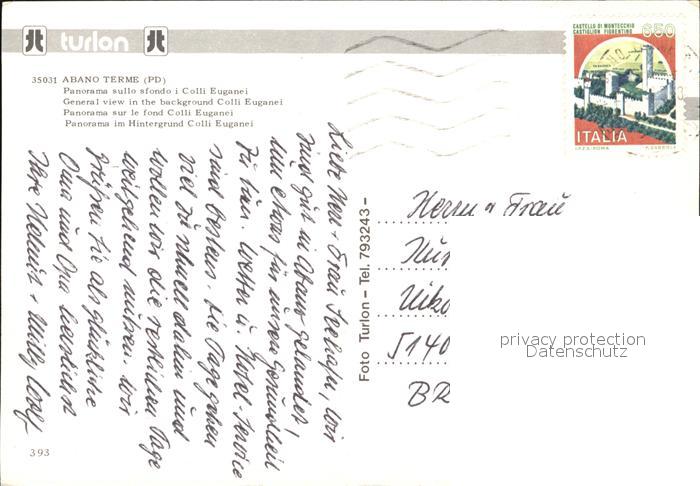 turlon
35031 ABANO TERME (PD)
Panorama sullo sfondo i Colli Euganei
General view in the background Colli Euganei
Panorama sur le fond Colli Euganei
Panorama im Hintergrund Colli Euganei
CASTELLO DI MONTECCHIO
CASTIGLION FIORENTINO
650
ITALIA
I.P.Z.S. ROMA
Liebe Herr + Frau wir
sind gut in Abano gelandet,
um etwas für unsere Gesundheit
zu tun. Wetter u. Hotel-Service
sind bestens. Die Tage gehen
viel zu schnell dahin und
wollen wir die restlichen Tage
weitgehend nutzen. Wir
grüßen Sie als glückliche
Oma und Opa herzlichst
Ihre Helmut + Willy Wolf
Foto Turlon - Tel. 793243 -
Herrn u Frau
5140
BR
privacy protection
Datenschutz
393